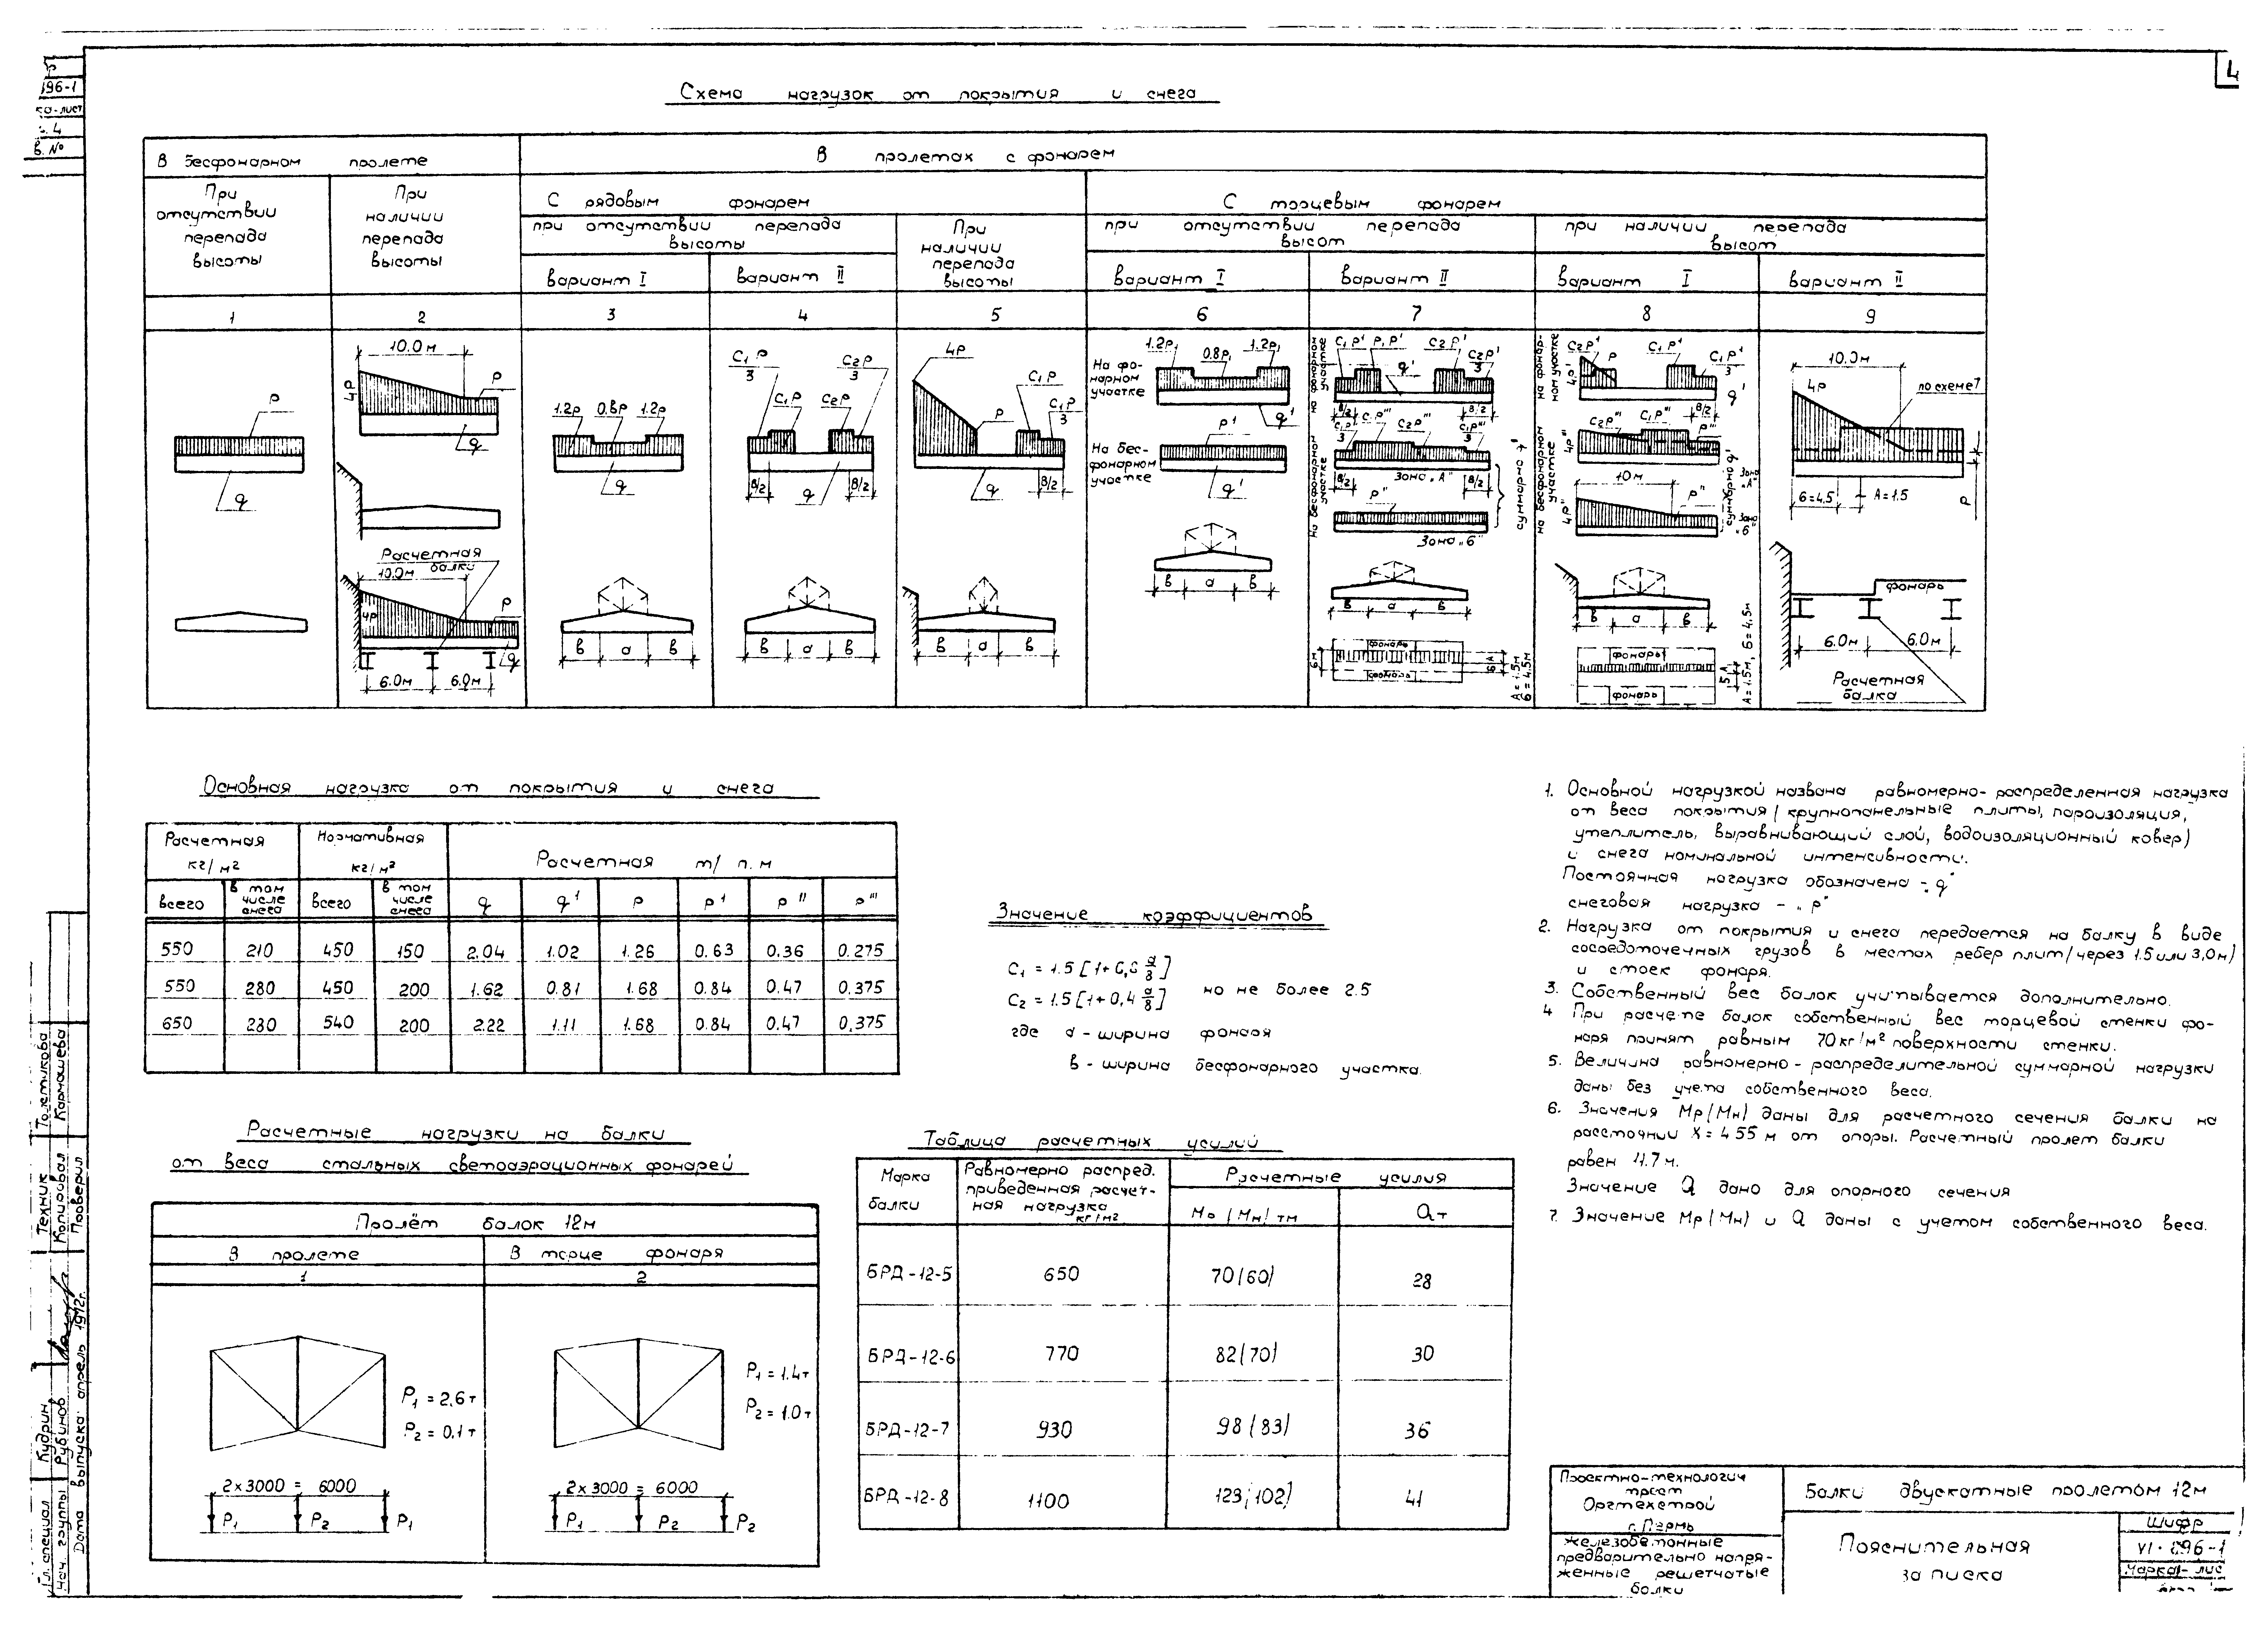 4
196-1
Схема нагрузок от покрытия и снега
В бесфонарном пролете
В пролетах с фонарем
При отсутствии перепада высоты
При наличии перепада высоты
С рядовым фонарем
С торцевым фонарем
при отсутствии перепада высоты
При наличии перепада высоты
при отсутствии перепада высот
при наличии перепада высот
вариант I
вариант II
вариант I
вариант II
вариант I
вариант II
1 2 3 4 5 6 7 8 9
P
q
10.0м
4P
P
q
Расчетная балки
10.0м
4P
P
q
6.0м 6.0м
1.2P 0.8P 1.2P
q
в а в
C₁P/3
C₂P/3
C₁P C₂P
в/2 q в/2
в а в
4P
P
C₁P
C₁P/3
q
в/2
в а в
На фонарном участке
1.2P₁ 0.8P₁ 1.2P₁
q¹
На бесфонарном участке
P¹
q¹
в а в
Зона „А"
P"
Зона „б"
суммарно
в а в
фонарь
фонарь
6м
А=1.5м
Б=4.5м
10м
P"
в а в
фонарь
фонарь
А=1.5м, Б=4.5м
10.0м
4P
по схеме 7
б=4.5 А=1.5
P
фонарь
6.0м 6.0м
Расчетная балка
Основная нагрузка от покрытия и снега
Расчетная кг/м²
Нормативная кг/м²
Расчетная т/п.м
всего
в том числе снега
всего
в том числе снега
q q¹ P P¹ P" P'''
550 210 450 150 2.04 1.02 1.26 0.63 0.36 0.275
550 280 450 200 1.62 0.81 1.68 0.84 0.47 0.375
650 280 540 200 2.22 1.11 1.68 0.84 0.47 0.375
Значение коэффициентов
C₂ = 1.5 [1+0,4 а/в] но не более 2.5
где а - ширина фонаря
в - ширина бесфонарного участка.
Расчетные нагрузки на балки
от веса стальных светоаэрационных фонарей
Пролёт балок 12м
В пролете
В торце фонаря
1 2
P₁ = 2.6т
P₂ = 0.1т
P₁ = 1.4т
P₂ = 1.0т
2х3000 = 6000
P₁ P₂ P₁
2х3000 = 6000
P₁ P₂ P₂
Таблица расчетных усилий
Марка балки
Равномерно распред. приведенная расчетная нагрузка кг/м²
Расчетные усилия
Мр (Мн) тм
Qт
БРД-12-5 650 70(60) 28
БРД-12-6 770 82(70) 30
БРД-12-7 930 98(83) 36
БРД-12-8 1100 123(102) 41
1. Основной нагрузкой названа равномерно-распределенная нагрузка
от веса покрытия (крупнопанельные плиты, пароизоляция,
утеплитель, выравнивающий слой, водоизоляционный ковер)
и снега номинальной интенсивности.
Постоянная нагрузка обозначена - „q"
снеговая нагрузка - „P"
2. Нагрузка от покрытия и снега передается на балку в виде
сосредоточечных грузов в местах ребер плит (через 1.5 или 3,0м)
и стоек фонаря.
3. Собственный вес балок учитывается дополнительно.
4 При расчете балок собственный вес торцевой стенки фо-
наря принят равным 70кг/м² поверхности стенки.
5. Величина равномерно-распределительной суммарной нагрузки
даны без учета собственного веса.
6. Значения Мр(Мн) даны для расчетного сечения балки на
расстоянии X=4.55 м от опоры. Расчетный пролет балки
равен 11.7м.
Значение Q дано для опорного сечения
7. Значение Мр(Мн) и Q даны с учетом собственного веса.
Проектно-технологич трест Оргтехстрой г. Пермь
Железобетонные предварительно напря-
женные решетчатые балки
Балки двускатные пролетом 12м
Пояснительная записка
Шифр
Толстикова
Кармашева
Техник
Копировал
Проверил
Кудрин
Рубинов
Гл. специал
Нач. группы
Дата выпуска: апрель 1972г.